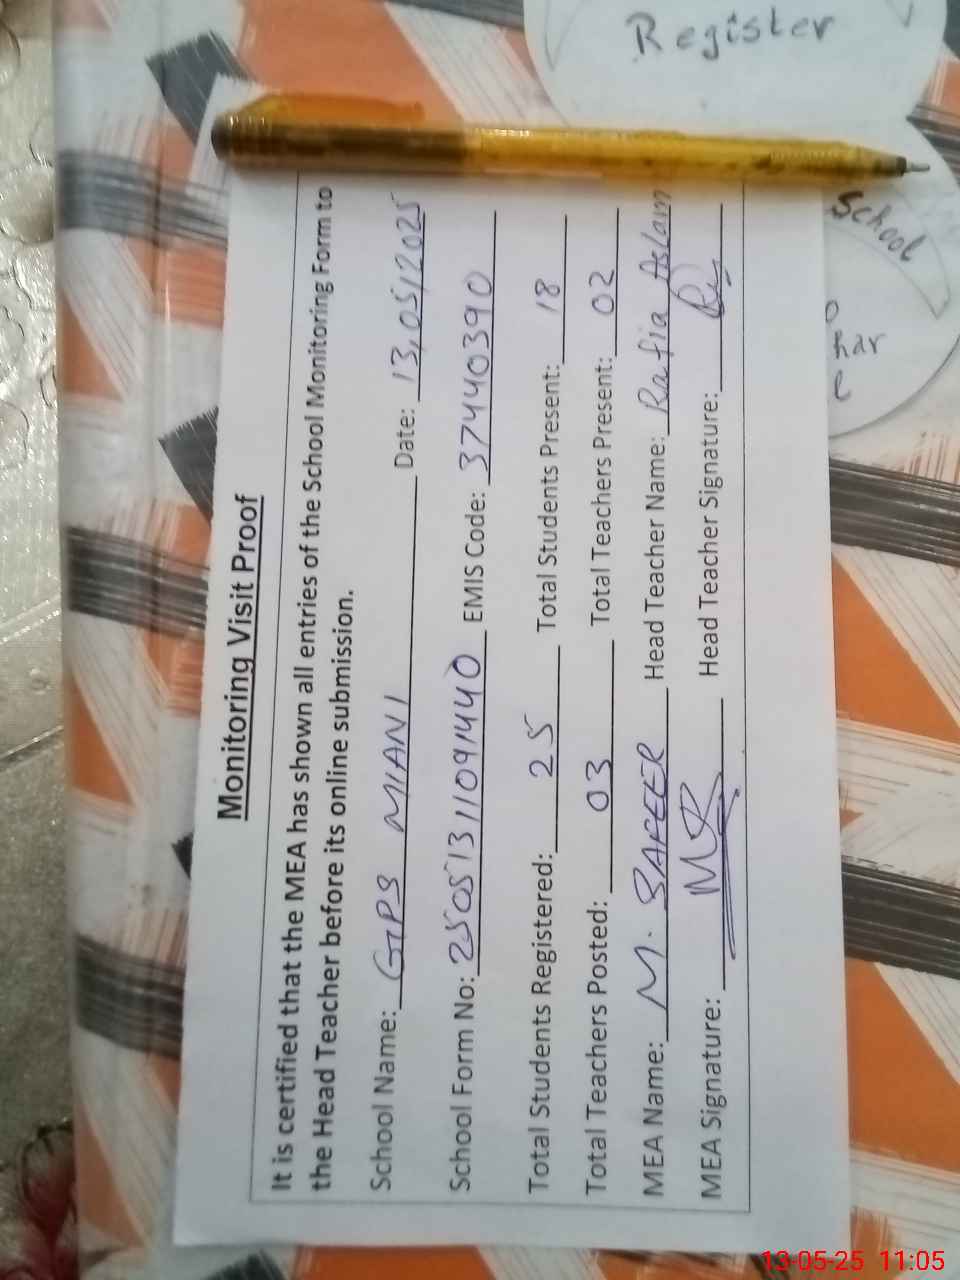 Register
School
har
Monitoring Visit Proof
It is certified that the MEA has shown all entries of the School Monitoring Form to
the Head Teacher before its online submission.
School Name: GPS MIANI Date: 13,05,2025
School Form No: 25051311091440 EMIS Code: 37440390
Total Students Registered: 25 Total Students Present: 18
Total Teachers Posted: 03 Total Teachers Present: 02
MEA Name: M. SAFEER Head Teacher Name: Rafia Aslam
MEA Signature: Head Teacher Signature:
13-05-25 11:05